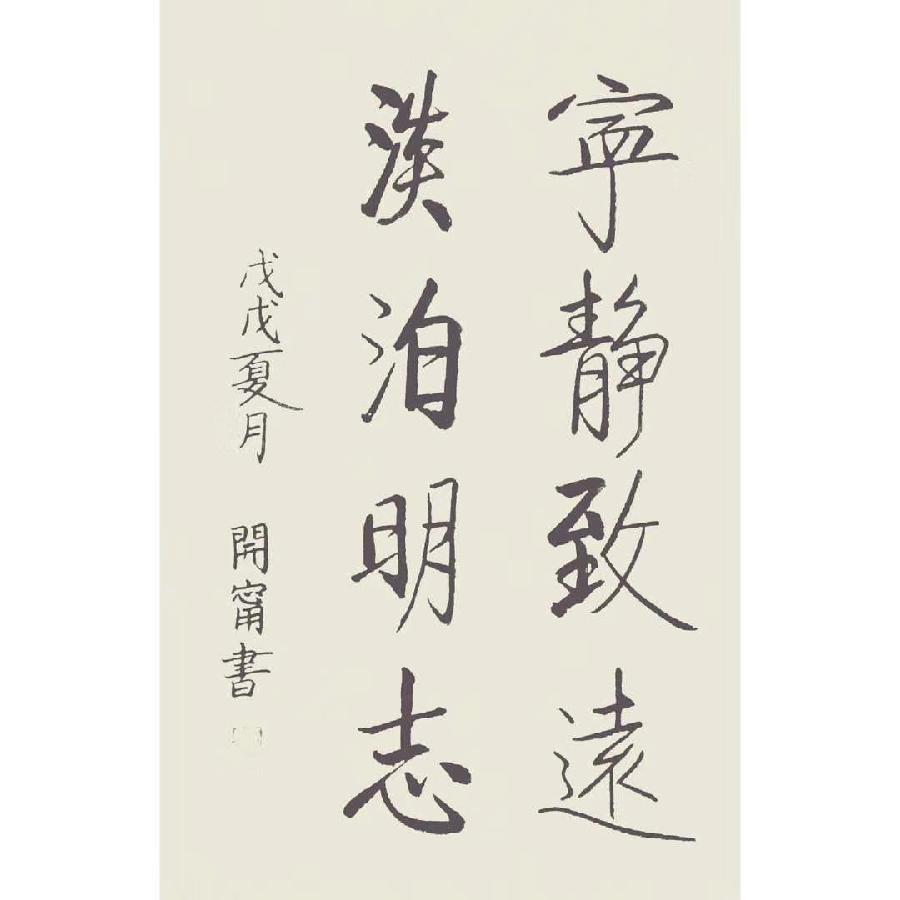 寧静致遠
淡泊明志
戊戌夏月 開甯書